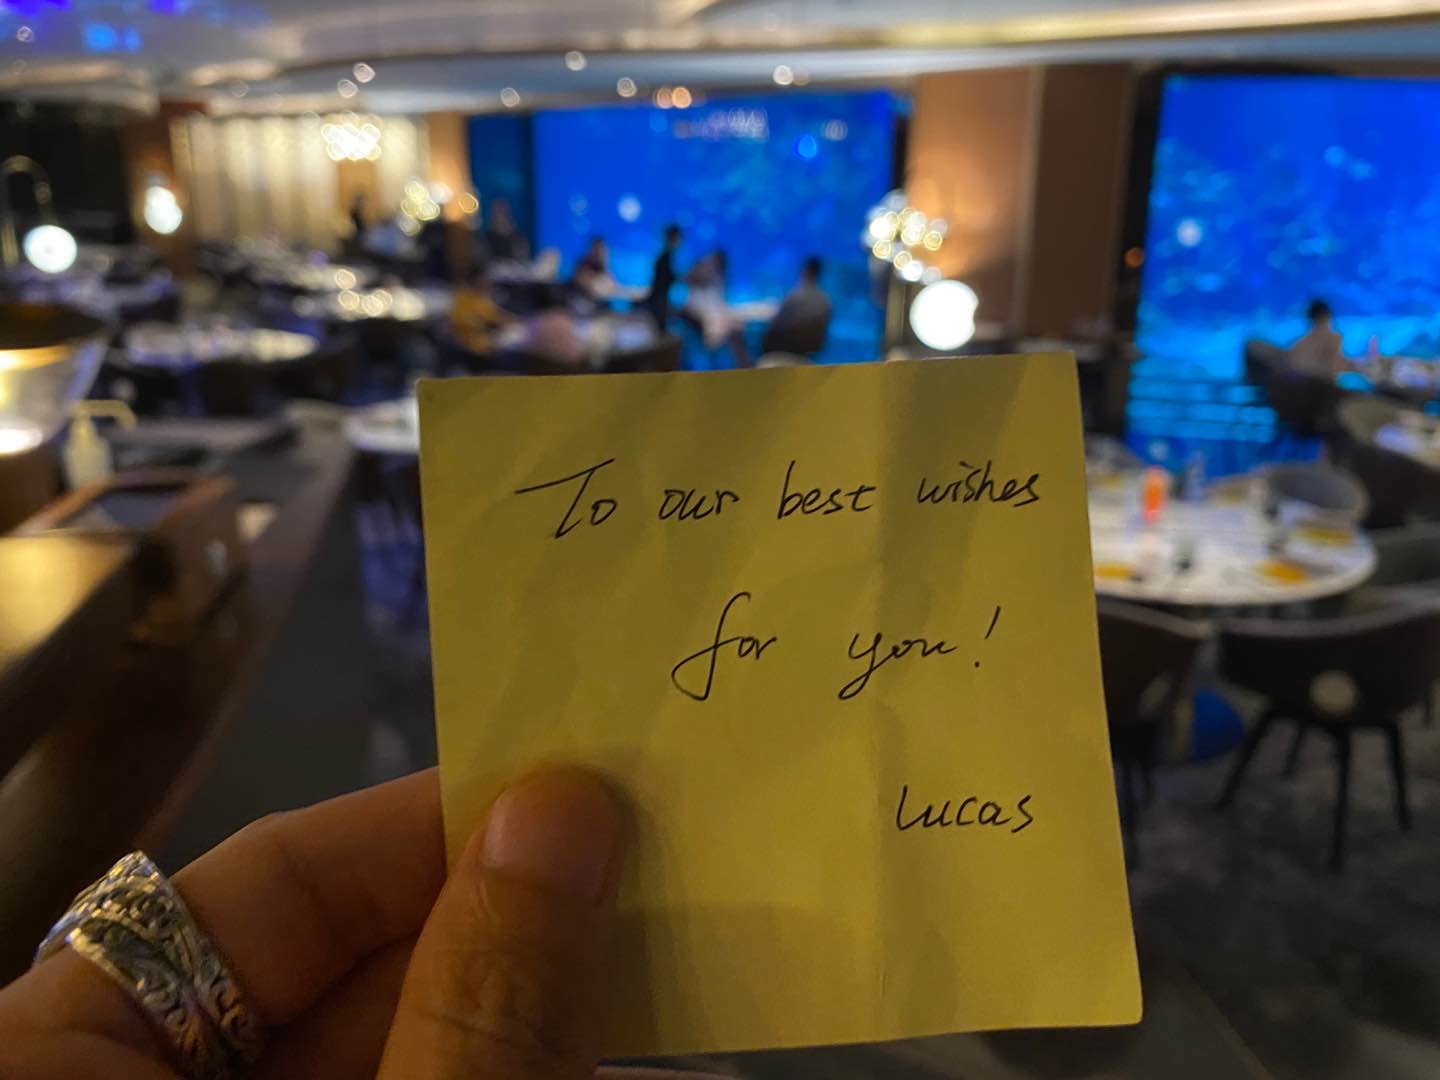 To our best wishes
for you!
Lucas